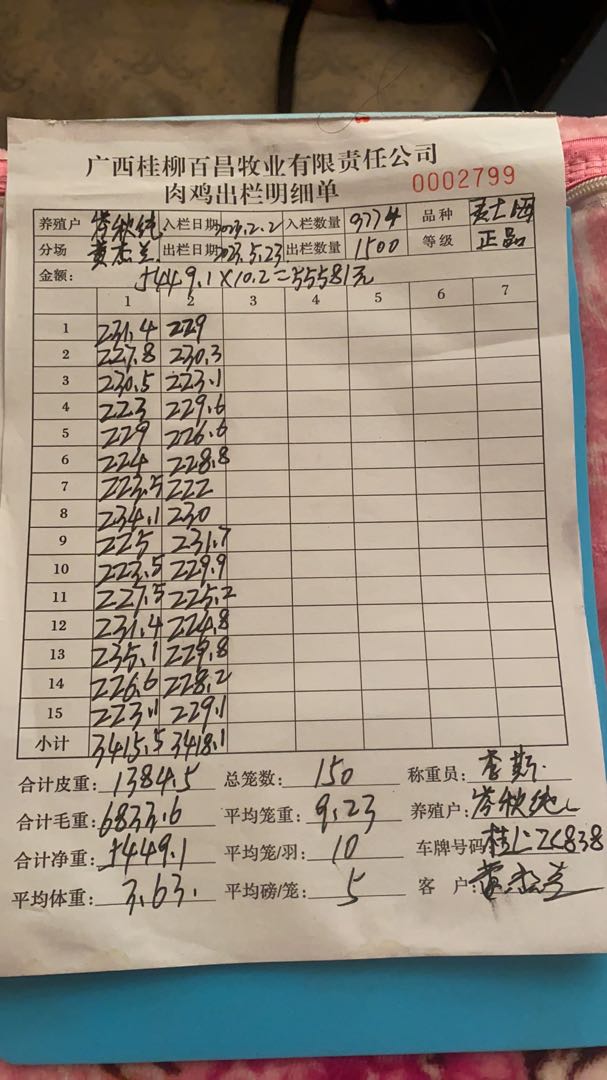 广西桂柳百昌牧业有限责任公司
肉鸡出栏明细单 0002799
养殖户 岑秋纯 入栏日期 2023.2.2 入栏数量 9774 品种
分场 黄杰兰 出栏日期 2023.5.23. 出栏数量 1500 等级 正品
金额: 5449.1×10.2=55581元
1 2 3 4 5 6 7
1 231.4 229
2 227.8 230.3
3 230.5 223.1
4 223 229.6
5 229 226.6
6 224 228.8
7 223.5 222
8 234.1 230
9 225 231.7
10 223.5 229.9
11 227.5 225.2
12 231.4 224.8
13 235.1 229.8
14 226.6 228.2
15 223.1 229.1
小计 3415.5 3418.1
合计皮重: 1384.5 总笼数: 150 称重员: 李斯
合计毛重: 6833.6 平均笼重: 9.23 养殖户: 岑秋纯
合计净重: 5449.1 平均笼/羽: 10 车牌号码:
平均体重: 3.63. 平均磅/笼: 5 客户: 黄杰兰